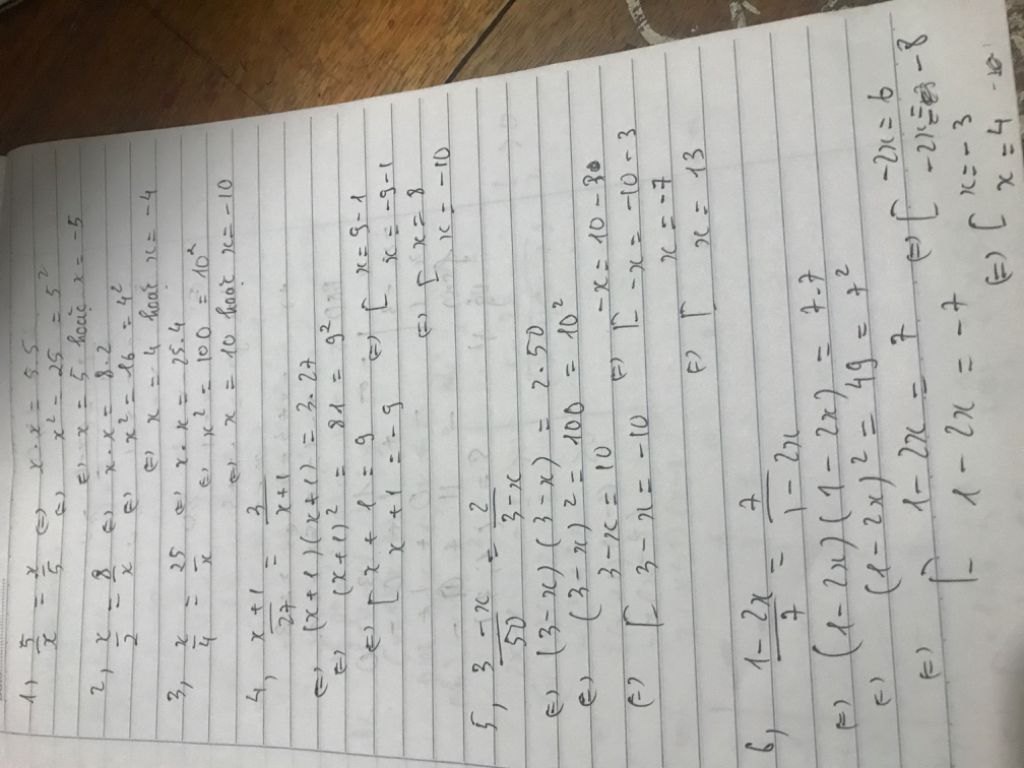 1, 5/x = x/5 (=) x.x = 5.5
(=) x² = 25 = 5²
(=) x = 5 hoặc x = -5
2, x/2 = 8/x (=) x.x = 8.2
(=) x² = 16 = 4²
(=) x = 4 hoặc x = -4
3, x/4 = 25/x (=) x.x = 25.4
(=) x² = 100 = 10²
(=) x = 10 hoặc x = -10
4, x+1/27 = 3/x+1
(=) (x+1)(x+1) = 3.27
(=) (x+1)² = 81 = 9²
(=) [ x+1 = 9 (=) [ x = 9-1
x+1 = -9 x = -9-1
(=) [ x = 8
x = -10
5, 3-x/50 = 2/3-x
(=) (3-x)(3-x) = 2.50
(=) (3-x)² = 100 = 10²
(=) [ 3-x = 10 (=) [ -x = 10-3
3-x = -10 -x = -10-3
(=) [ x = -7
x = 13
6, 1-2x/7 = 7/1-2x
(=) (1-2x)(1-2x) = 7.7
(=) (1-2x)² = 49 = 7²
(=) [ 1-2x = 7 (=) [ -2x = 6
1-2x = -7 -2x = -8
(=) [ x = -3
x = 4